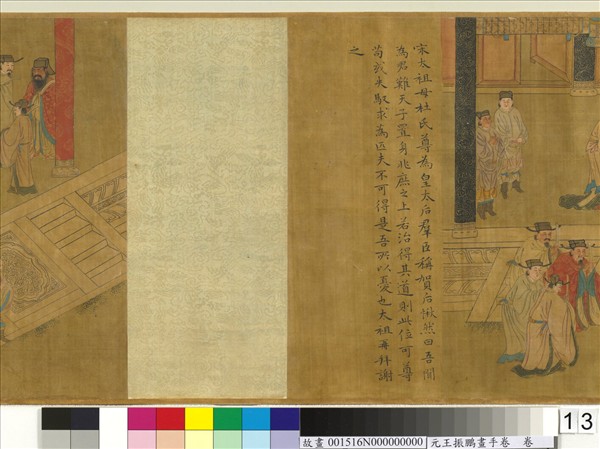 宋太祖母杜氏尊為皇太后羣臣稱賀后愀然曰吾聞
為君難天子置身兆庶之上若治得其道則此位可尊
苟或失馭求為匹夫不可得是吾所以憂也太祖再拜謝
之
故畫 001516N000000000
元王振鵬畫手卷 卷
13